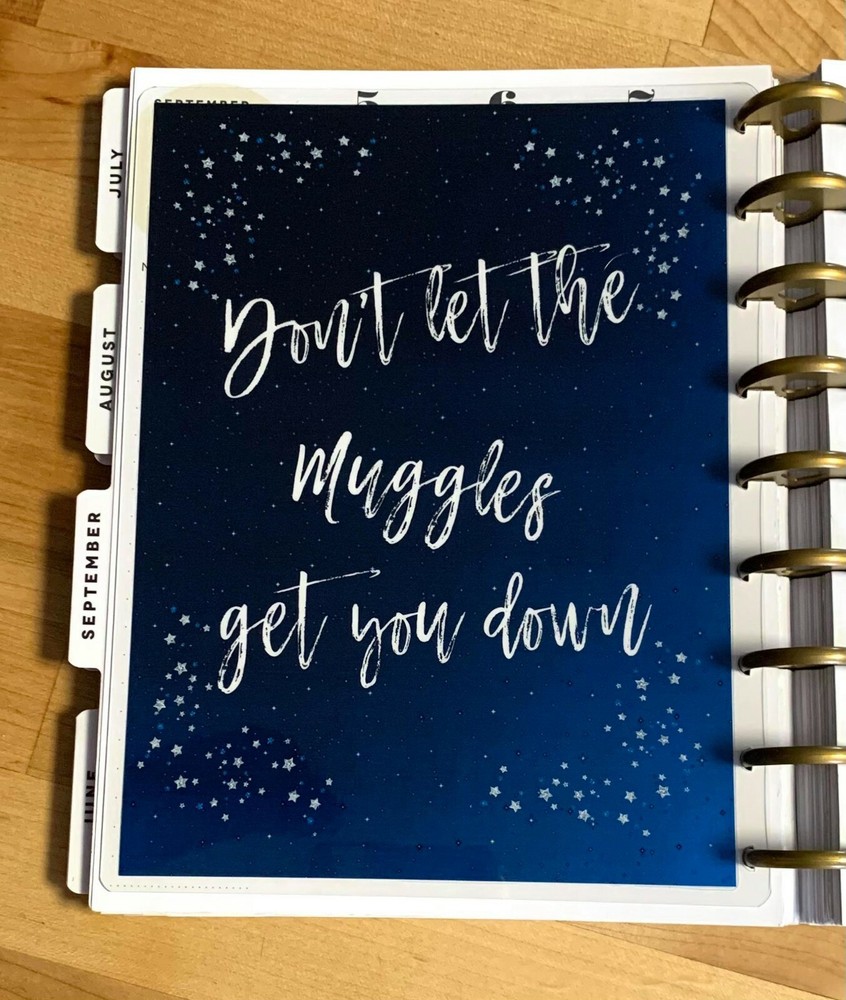 SEPTEMBER 5 6 7
JULY
AUGUST
SEPTEMBER
JUNE
Don't let the
Muggles
get you down